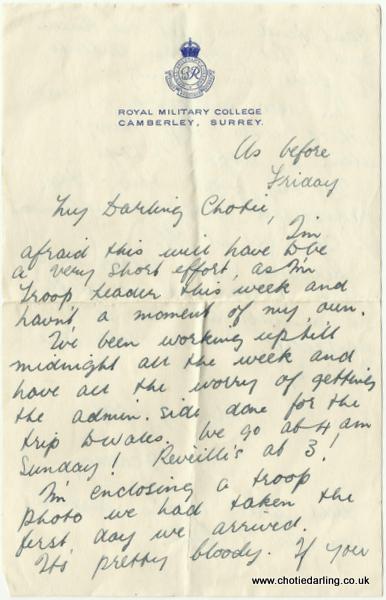 GR
ROYAL MILITARY COLLEGE
CAMBERLEY, SURREY.
As before
Friday
My Darling Chotie,
I'm
afraid this will have to be
a very short effort, as I'm
Troop Leader this week and
havn't a moment of my own.
I've been working uptill
midnight all the week and
have all the worry of getting
the admin. side done for the
trip to Wales. We go at 4 am
Sunday! Reveille's at 3!
I'm enclosing a troop
photo we had taken the
first day we arrived.
It's pretty bloody. If you
www.chotiedarling.co.uk